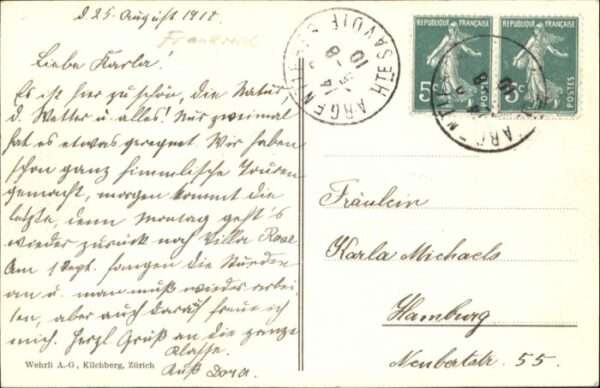 d. 25. August 1910.
Frankreich
Liebe Karla!
Es ist hier zu schön, die Natur
d. Wetter u. alles! Nur zweimal
hat es etwas geregnet. Wir haben
schon ganz himmlische Touren
gemacht, morgen kommt die
letzte, denn Montag geht's
wieder zurück nach Villa Rose
Am 1 Sept. fangen die Stunden
an u. man muß wieder arbei-
ten, aber auch darauf freue ich
mich. Herzl Gruß an die ganze
Klasse.
Kuß Dora.
Wehrli A.-G., Kilchberg, Zürich
HTE SAVOIE
10
RÉPUBLIQUE FRANÇAISE
5c
POSTES
RÉPUBLIQUE FRANÇAISE
5c
POSTES
Fräulein
Karla Michaels
Hamburg
55.